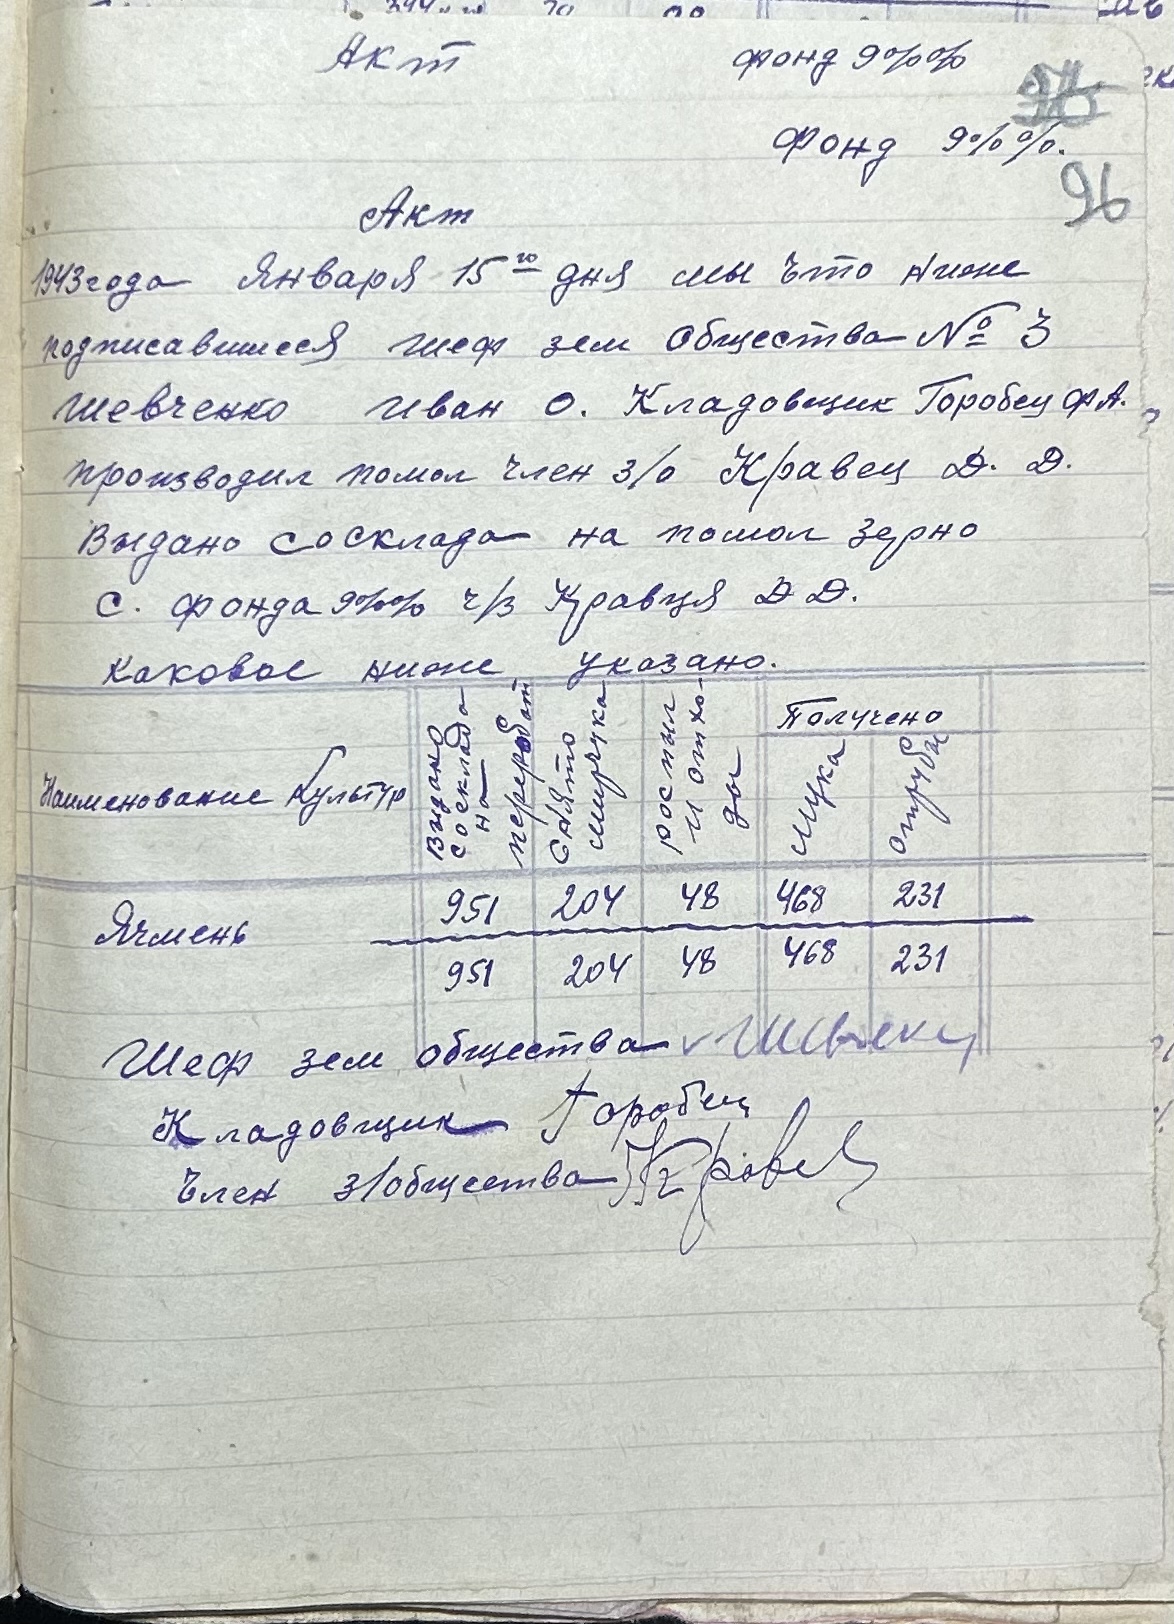 Акт фонд 9%%
фонд 9%%.
96
Акт
1943 года Января 15го дня мы что ниже
подписавшиеся шеф зем общества № 3
Шевченко Иван О. Кладовщик Горобец Ф А.
производил помол член з/о Кравец Д. Д.
Выдано со склада на помол зерно
С. фонда 9%% ч/з Кравця Д Д.
Каковое ниже указано.
Наименование Культур Выдано со склада на переработ Снято мирчука роспыл и отходы Получено
мука отрубы
Ячмень 951 204 48 468 231
951 204 48 468 231
Шеф зем общества
Кладовщик Горобец
Член з/общества Кравец